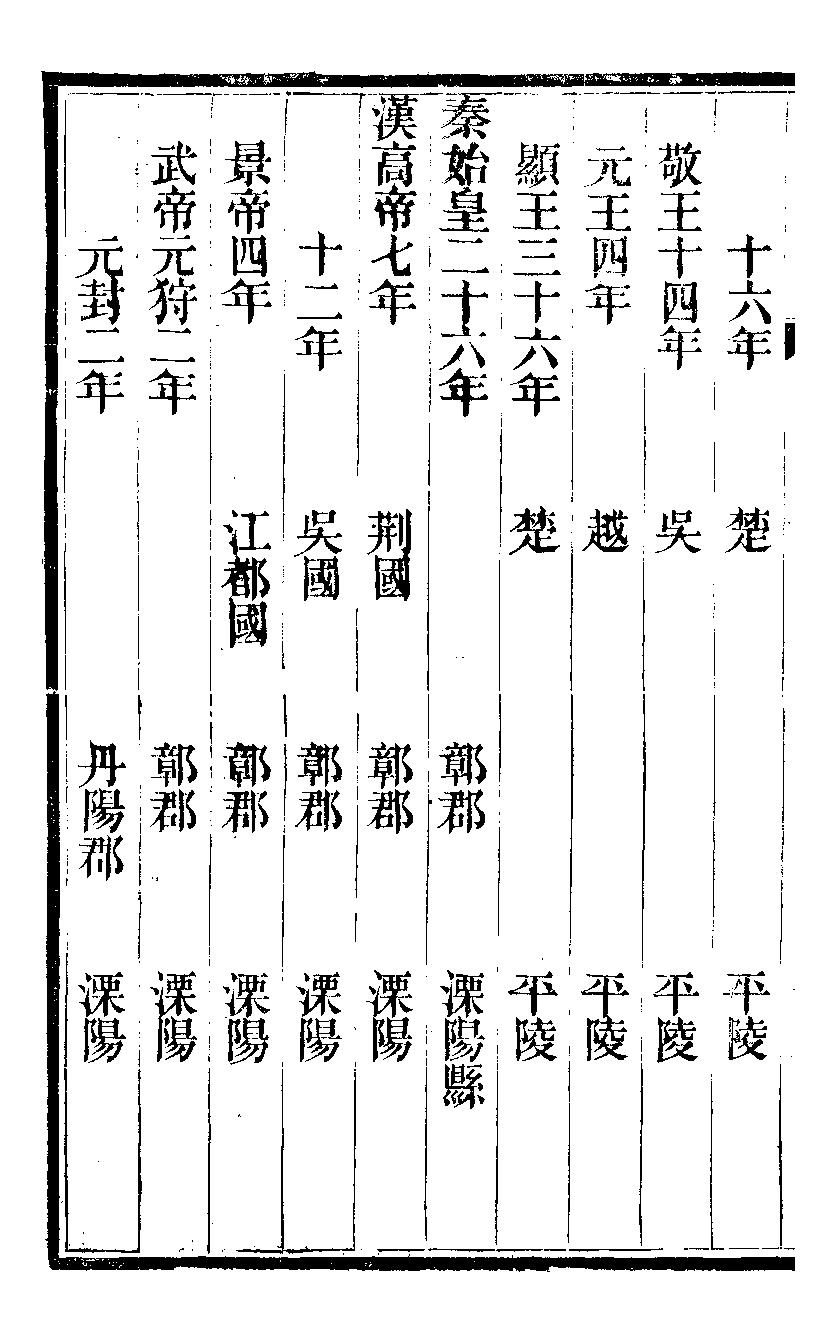 十六年 楚 平陵
敬王十四年 吳 平陵
元王四年 越 平陵
顯王三十六年 楚 平陵
秦始皇二十六年 鄣郡 溧陽縣
漢高帝七年 荆國 鄣郡 溧陽
十二年 吳國 鄣郡 溧陽
景帝四年 江都國 鄣郡 溧陽
武帝元狩二年 鄣郡 溧陽
元封二年 丹陽郡 溧陽